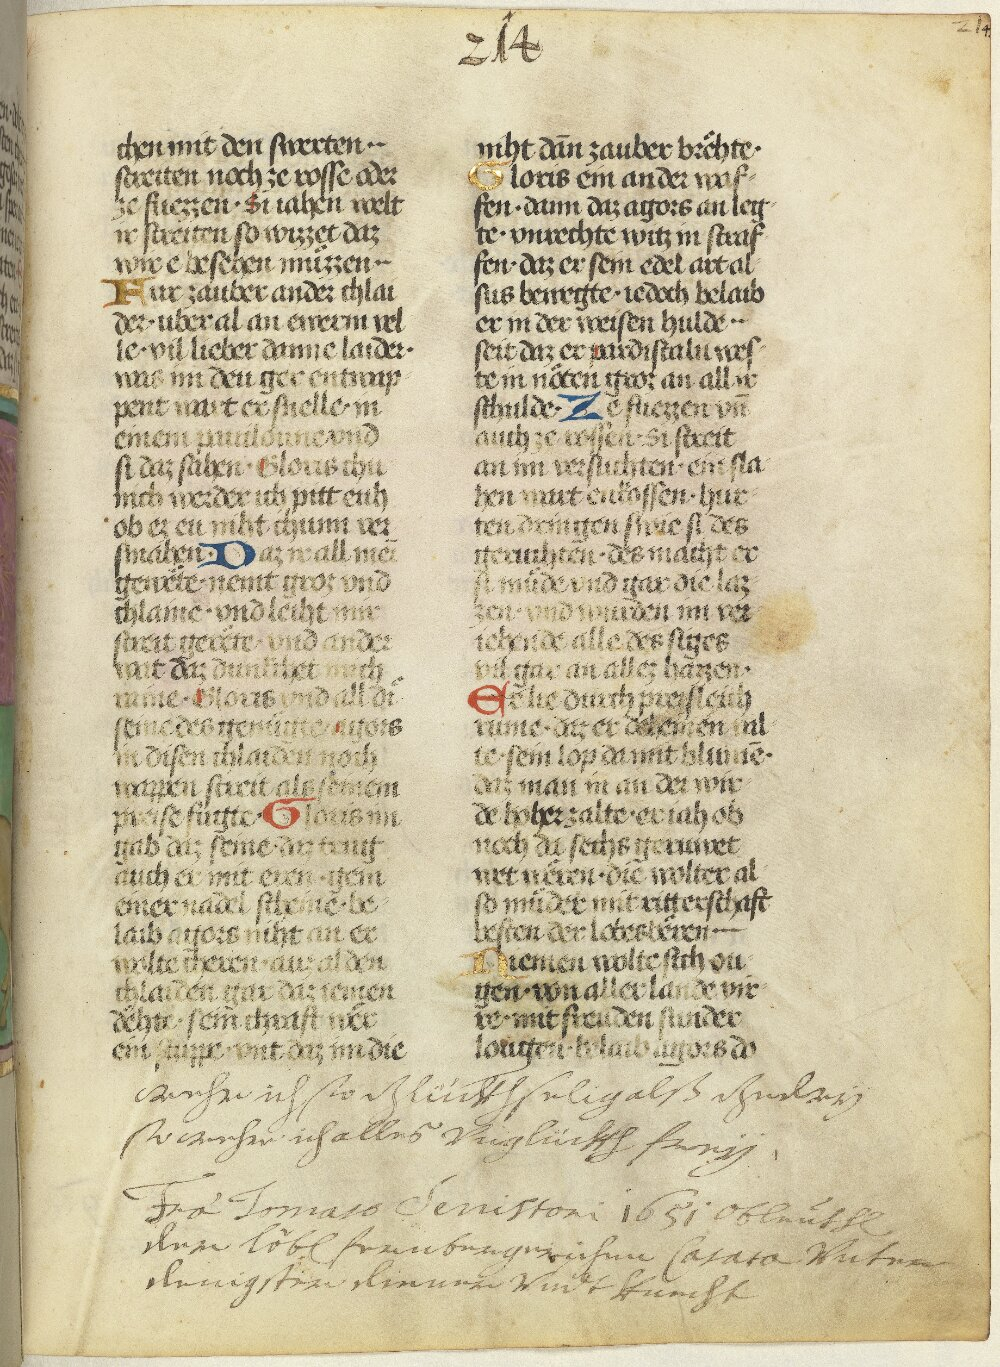 214
214
chen mit den swerten··
streiten noch ze rosse oder
ze fuezzen· Si iahen welt
ir streiten so wizzet daz
wir e besehen müzzen··
Fur zauber ander chlai
der· uber al an ewerm vel
le· vil lieber danne laider·
was im den ger entwap
pent wart er snelle· in
einem pauiloune vnd
si daz sahen· Gloris thu
mich werder ich pitt euh
ob er eu niht chunn ver
smahen· Daz ir all mein
geræte· nemt groz vnd
chlaine· vnd leiht mir
streit geræte· vnd ander
wat daz dunkhet mich
raine· Gloris vnd all di
seine des genügte· agors
in disen chlaiden noch
wappen streit als seinem
preise fügte· Gloris im
gab daz seine· daz trug
auch er mit eren· gein
einer nadel scheine· be
laib agors niht an er
wolte cheren· auz al den
chlaiden gar daz iemen
dæhte· sein chraft wer
ein stuppe wnt daz im die
niht dañ zauber bræhte·
Gloris ein ander waf
fen· dann daz agors an leg
te· vnrechte witz in straf
fen· daz er sein edel art al
sus bewegte· iedoch belaib
er in der weisen hulde··
seit daz er pardiscalu wes
te in nöten groz an all ir
schulde· Ze fuezzen vñ
auch ze rossen· Si streit
an im versuchten· ein sla
hen wart enkossen· hur
ten dringen swie si des
geruchten· des macht er
si müde vnd gar die laz
zen· vnd wurden im ver
iehende alle des siges
vil gar an allez hazzen·
Eclie durch preisleich
rume· daz er deheinen wil
te· sein lop da mit blumē·
daz man in an der wir
de hoher zalte· er iah ob
noch da sechs geruwet
wet wēren· die wolter al
so müder mit ritterschaft
besten der lobesbēren··
Niemen wolte sich ou
gen· von aller lande vir
re· mit freuden sunder
lougen· belaib agors do
wehre ich so glückhselig alß gedrey
so wehre ich alles vnglückh frey.
Fra Tomaso 1651